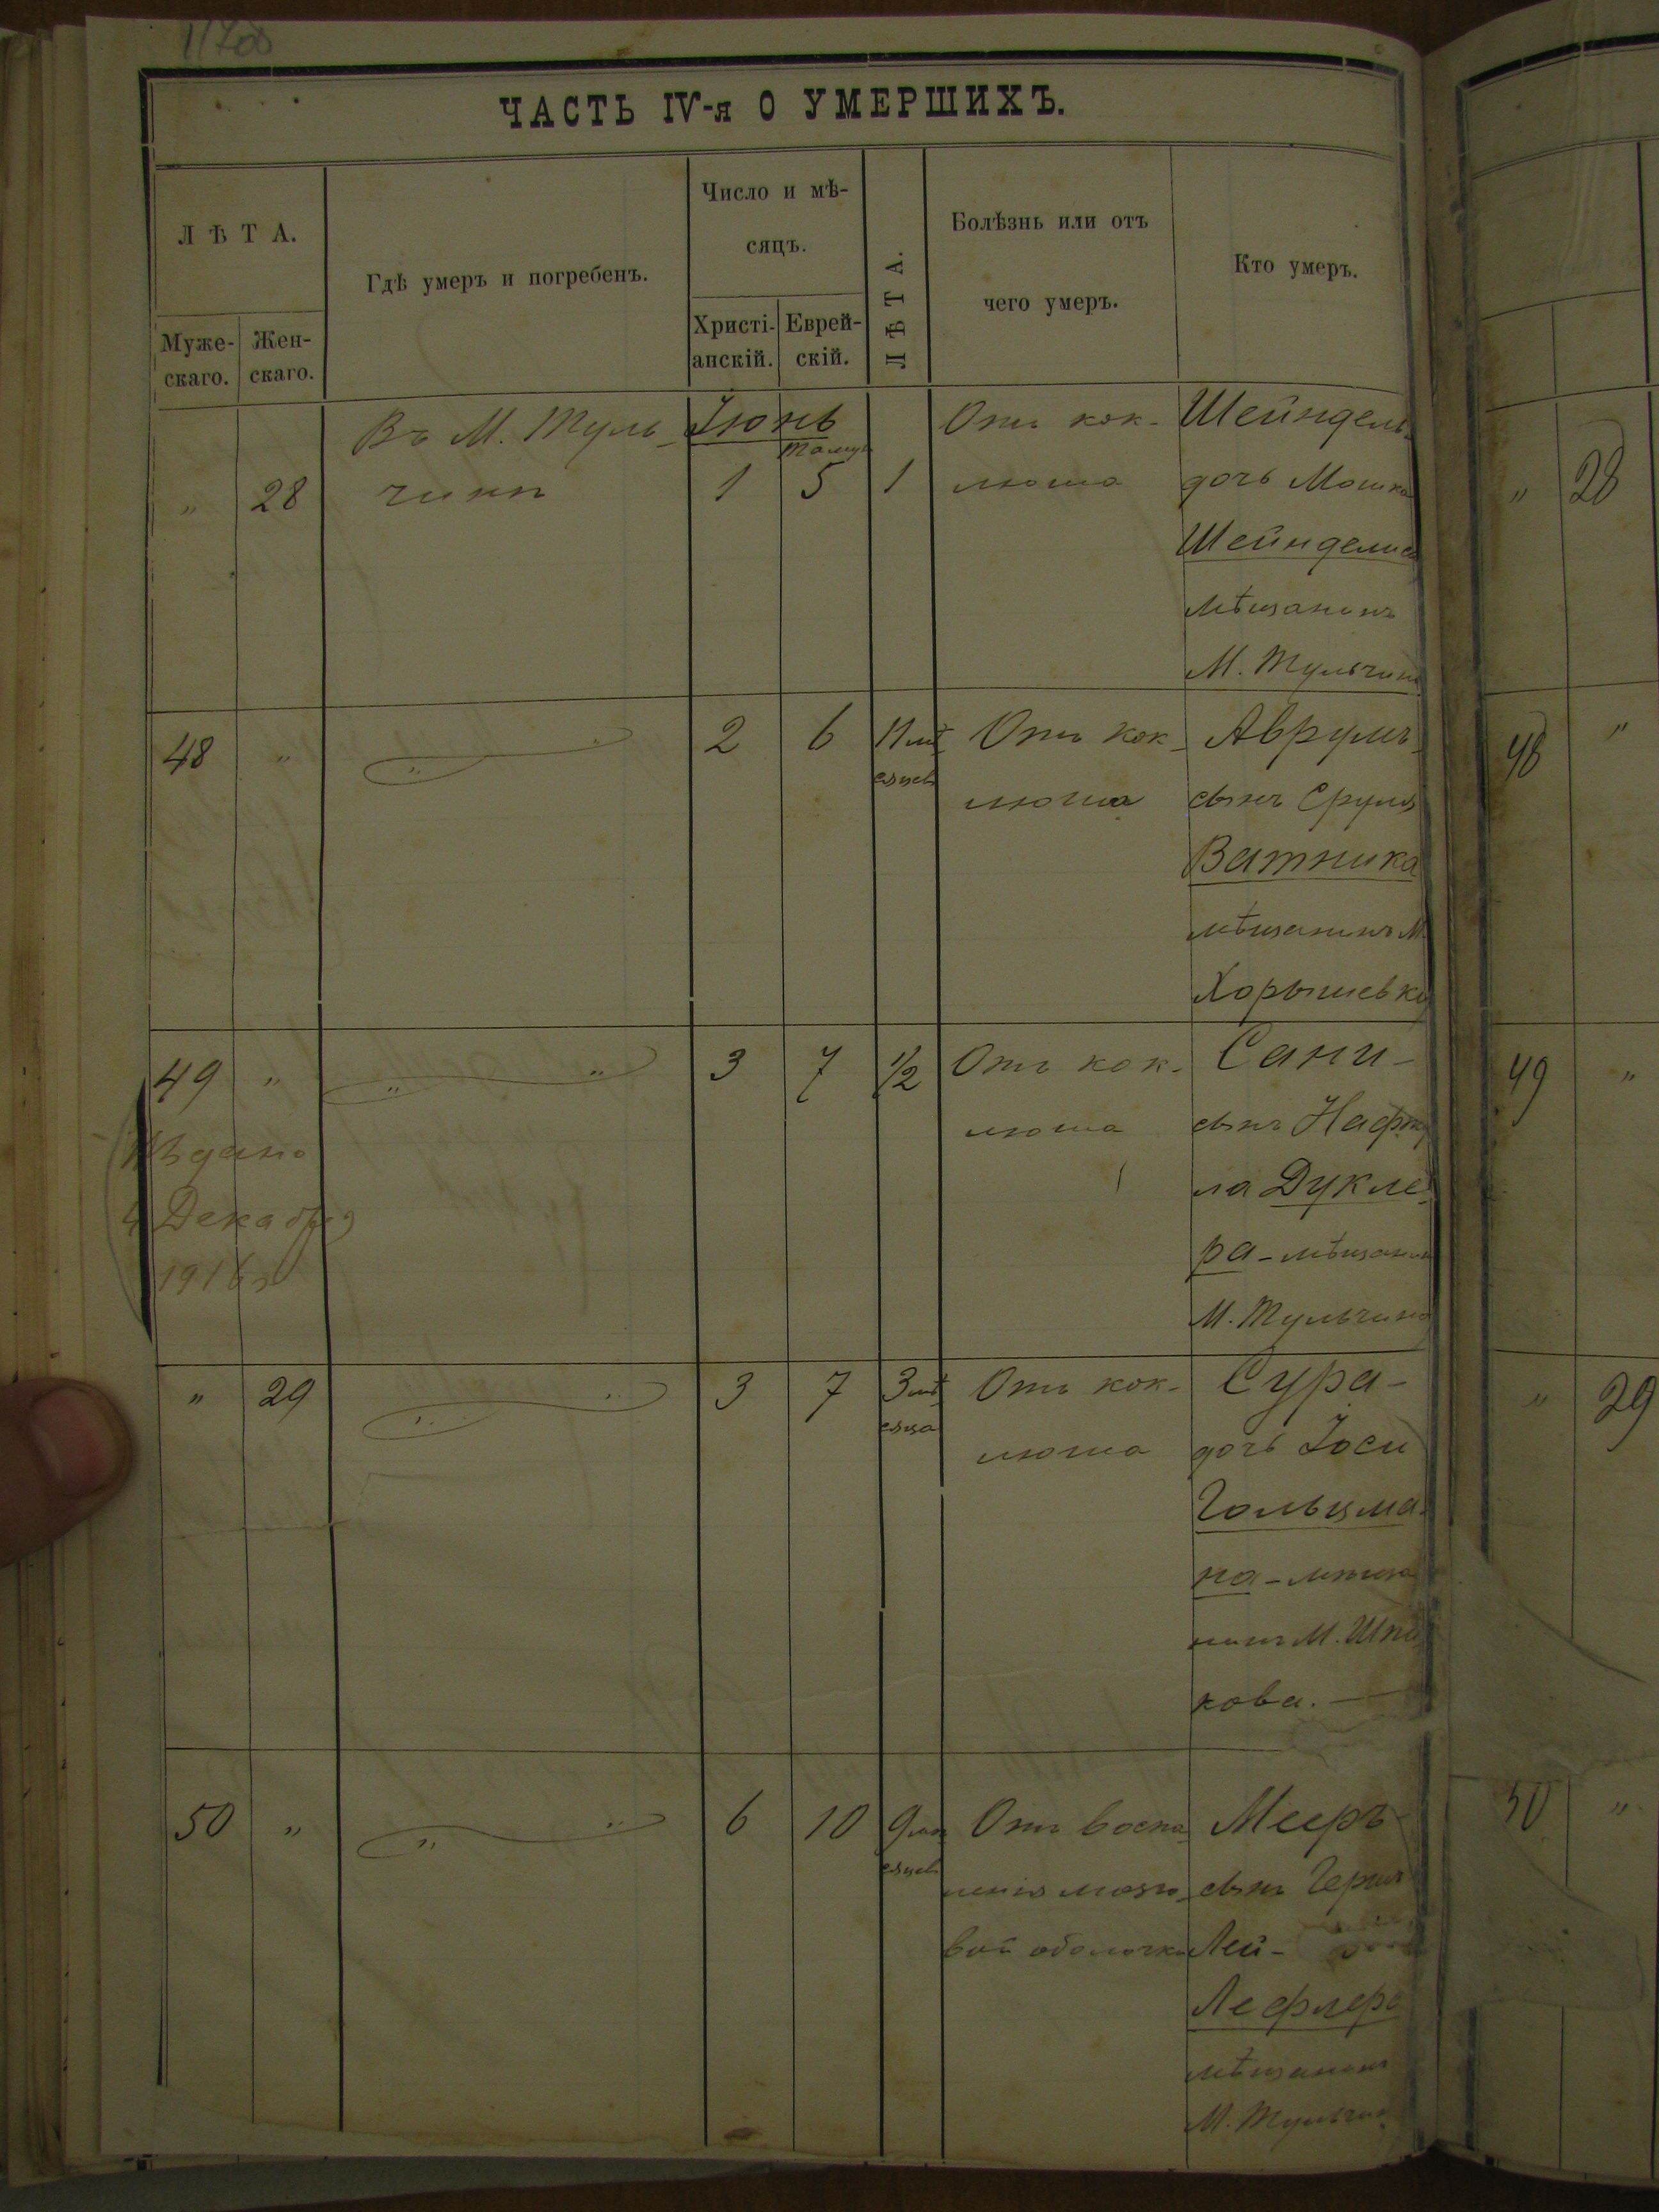 ЧАСТЬ IV-я О УМЕРШИХЪ.
ЛѢТА.
Муже-
скаго.
Жен-
скаго.
Гдѣ умеръ и погребенъ.
Число и мѣ-
сяцъ.
Христі-
анскій.
Еврей-
скій.
ЛѢТА.
Болѣзнь или отъ
чего умеръ.
Кто умеръ.
„ 28
Въ М. Туль-
чинѣ
Іюнь
1 5 1
Отъ кок-
люша
Шейндель-
дочь Мошка
Шейнделиса
мѣщанинъ
М. Тульчина
48 „
„
2 6 11 мѣ-
сяцевъ
Отъ кок-
люша
Аврумъ-
сынъ Сруля
Ватника
мѣщанинъ М.
49 „
„ „
3 7 1/2
Отъ кок-
люша
Сани-
сынъ Нафту
ла Дукле-
ра - мѣщанинъ
М. Тульчина
4 Декабря
1916 г
„ 29
„ „
3 7 3 мѣ-
сяца
Отъ кок-
люша
Сура-
дочь Іоси
Гольцма-
на - мѣща
нинъ М. Шпи
кова. —
50 „
„ „
6 10 9 мѣ-
сяцевъ
Отъ воспа-
ленія мозго-
вой оболочки
Мееръ-
сынъ Гершъ
Лей-
Лефлера
мѣщанинъ
М. Тульчин
„ 28
48 „
49 „
„ 29
50 „